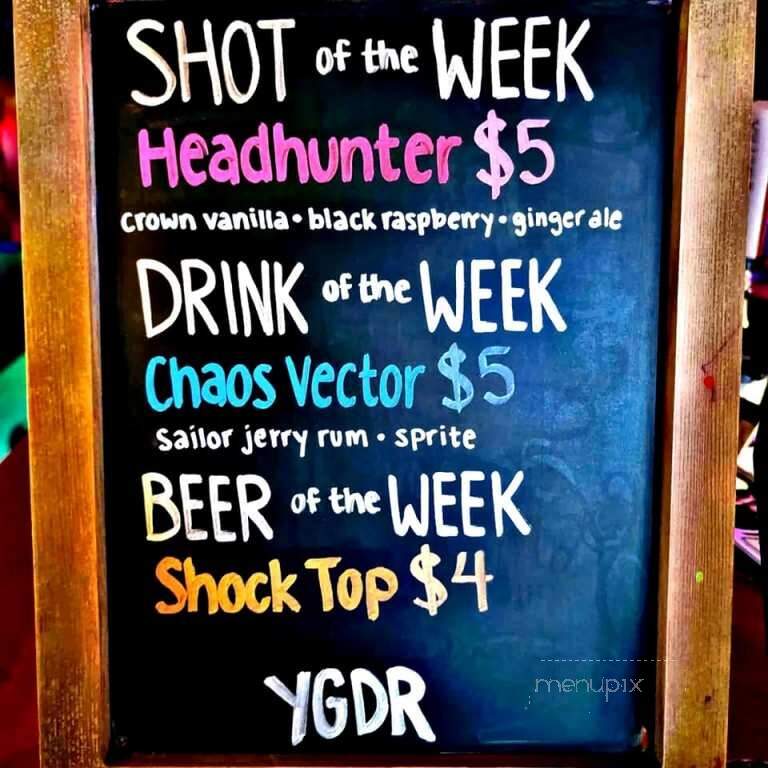 SHOT of the WEEK
Headhunter $5
crown vanilla • black raspberry • ginger ale
DRINK of the WEEK
Chaos Vector $5
sailor jerry rum • sprite
BEER of the WEEK
Shock Top $4
YGDR
menupix